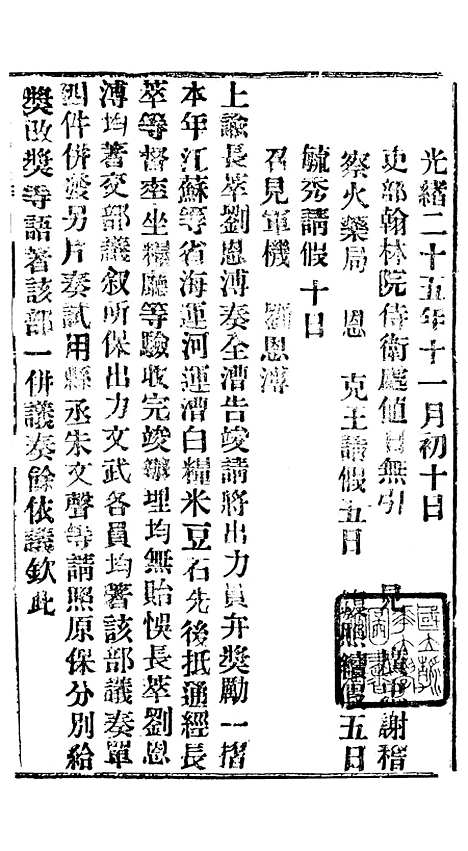 光緒二十五年十一月初十日
吏部翰林院侍衛處值日無引見 謝稽
察火藥局 恩 克王請假五日 照續假五日
毓秀請假十日
召見軍機 劉恩溥
上諭長萃劉恩溥奏全漕告竣請將出力員弁獎勵一摺
本年江蘇等省海運河運漕白糧米豆石先後抵通經長
萃等督率坐糧廳等驗收完竣辦理均無貽悞長萃劉恩
溥均著交部議叙所保出力文武各員均著該部議奏單
四件併發另片奏試用縣丞朱文聲等請照原保分別給
獎改獎等語著該部一併議奏餘依議欽此